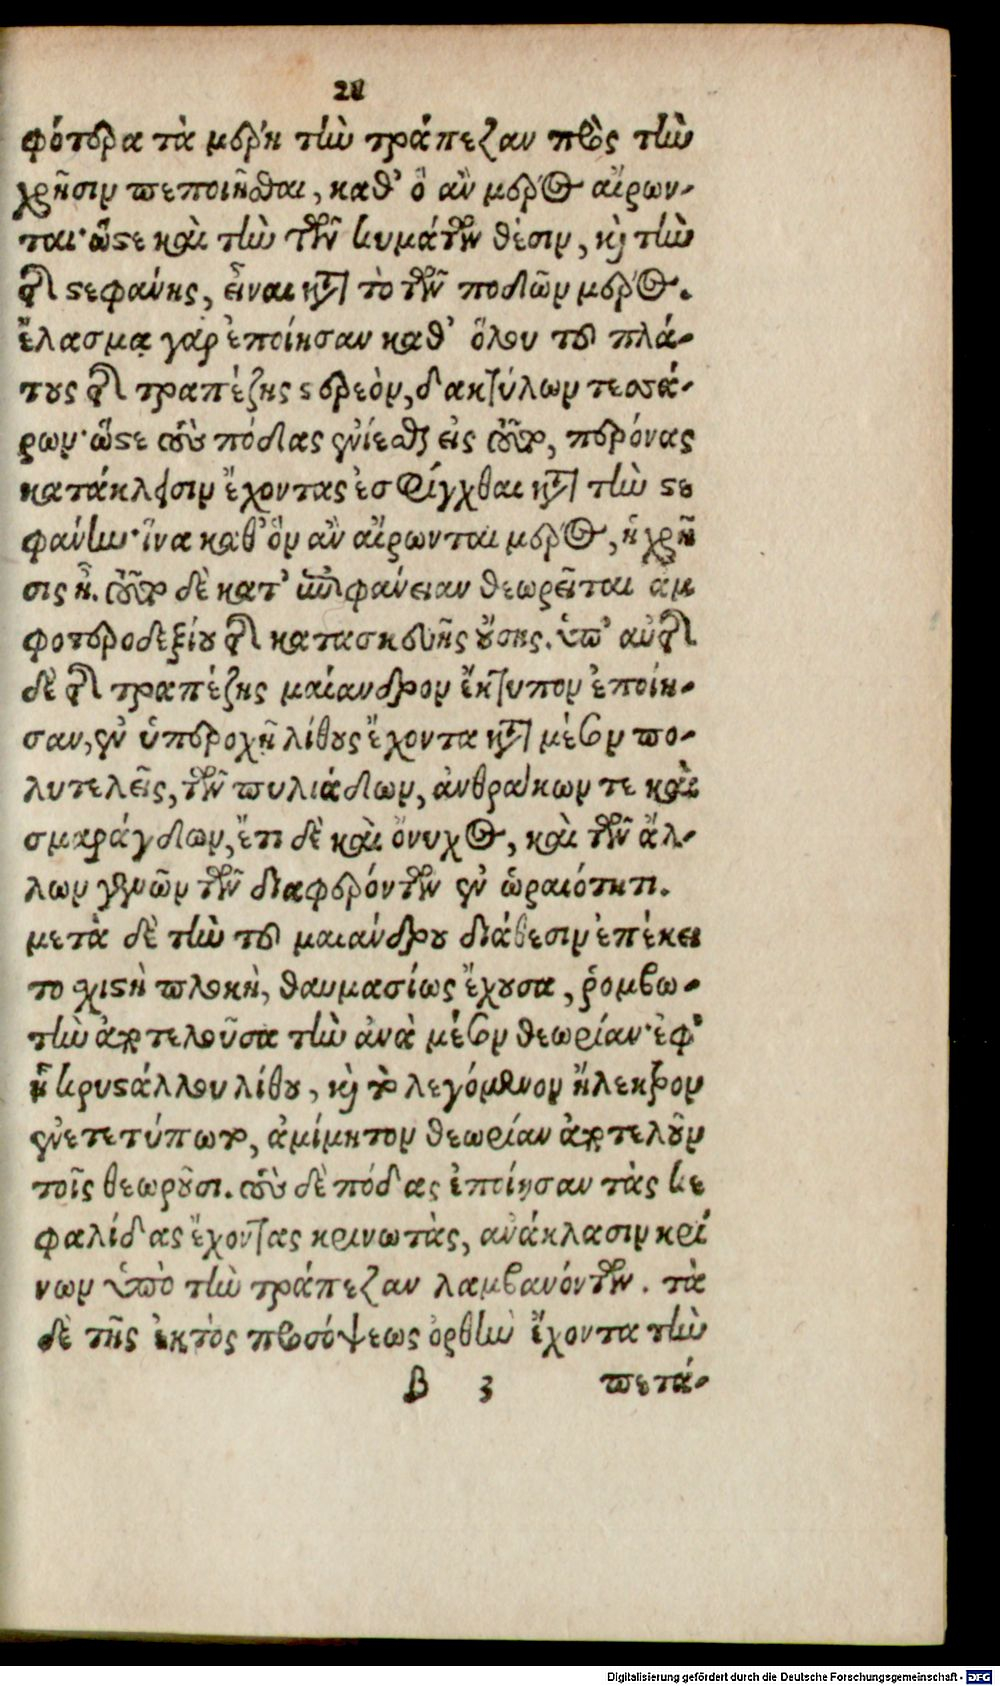 21
φότερα τὰ μέρη τὴν τράπεζαν πρὸς τὴν
χρῆσιν πεποιῆσθαι, καθ' ὃ ἂν μέρος αἴρων-
ται· ὥστε καὶ τὴν τῶν κυμάτων θέσιν, καὶ τὴν
τῆς στεφάνης, εἶναι κατὰ τὸ τῶν ποδῶν μέρος.
ἔλασμα γὰρ ἐποίησαν καθ' ὅλου τοῦ πλά-
τους τῆς τραπέζης στερεὸν, δακτύλων τεσσά-
ρων· ὥστε τοὺς πόδας ἐνίεσθαι εἰς τοῦτο, περόνας
κατάκλεισιν ἔχοντας ἐσφίγχθαι κατὰ τὴν στε
φάνην· ἵνα καθ' ὃν ἂν αἴρωνται μέρος, ἡ χρῆ
σις ᾖ. τοῦτο δὲ κατ' ἐπιφάνειαν θεωρεῖται ἀμ
φοτεροδεξίου τῆς κατασκευῆς οὔσης. ἐπ' αὐτῆς
δὲ τῆς τραπέζης μαίανδρον ἔκτυπον ἐποίη-
σαν, ἐν ὑπεροχῇ λίθους ἔχοντα κατὰ μέσον πο-
λυτελεῖς, τῶν πυλιάδων, ἀνθράκων τε καὶ
σμαράγδων, ἔτι δὲ καὶ ὄνυχος, καὶ τῶν ἄλ-
λων γενῶν τῶν διαφερόντων ἐν ὡραιότητι.
μετὰ δὲ τὴν τοῦ μαιάνδρου διάθεσιν ἐπέκει
το σχιστὴ πλοκὴ, θαυμασίως ἔχουσα, ῥομβω-
τὴν ἀποτελοῦσα τὴν ἀνὰ μέσον θεωρίαν· ἐφ'
ᾗ κρυστάλλου λίθου, καὶ τὸ λεγόμενον ἤλεκτρον
ἐνετετύπωτο, ἀμίμητον θεωρίαν ἀποτελοῦν
τοῖς θεωροῦσι. τοὺς δὲ πόδας ἐποίησαν τὰς κε
φαλίδας ἔχοντας κρινωτὰς, ἀνάκλασιν κρί
νων ὑπὸ τὴν τράπεζαν λαμβανόντων. τὰ
δὲ τῆς ἐκτὸς προσόψεως ὀρθὴν ἔχοντα τὴν
B 3 πετά-
Digitalisierung gefördert durch die Deutsche Forschungsgemeinschaft - DFG